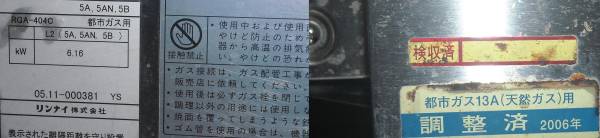 5A, 5AN, 5B
RGA-404C 都市ガス用
L2 (5A, 5AN, 5B)
kW 6.16
05.11-000381 YS
リンナイ株式会社
表示された離隔距離を守り設置
接触禁止
・使用中および使用
やけど防止のため
器から高温の排気が
い。やけどの恐れ
・ガス接続は、ガス配管工事が
販売店に依頼してください。
・使用後は必ずガス栓を閉じて
・調理以外の用途には使用し
・焼面を覆ってしまうような
・ゴム管を使用の場合は、機
検収済
都市ガス13A(天然ガス)用
調整済 2006年